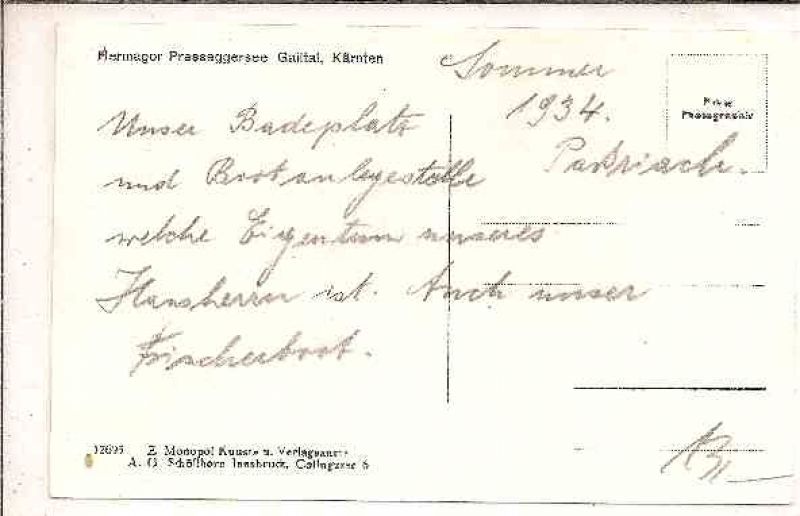 Hermagor Presseggersee Gailtal, Kärnten
Sommer
1934.
Photographie
Paßriach.
Unser Badeplatz
und Bootanlegestelle
welche Eigentum unseres
Hausherrn ist. Auch unser
Fischerboot.
12695 Z Monopol Kunst- u. Verlagsanst.
A. G. Schöllhorn Innsbruck, Colingasse 6